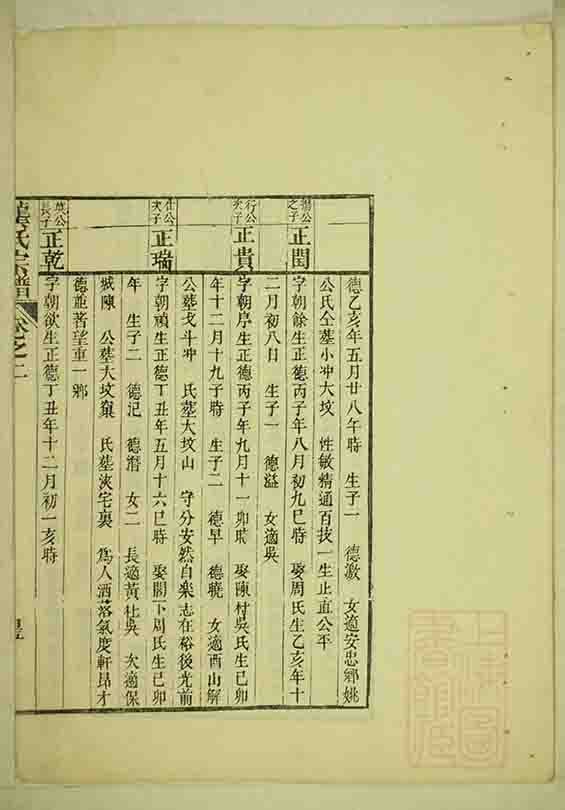 德乙亥年五月廿八午時 生子一 德澂 女適安忠鄉姚
公氏仝墓小冲大坟 性敏精通百技一生止直公平
楊公之子 正閏 字朝餘生正德丙子年八月初九巳時 娶周氏生乙亥年十
二月初八日 生子一 德溢 女適吳
行公次子 正貴 字朝序生正德丙子年九月十一卯時 娶陳村吳氏生己卯
年十二月十九子時 生子二 德早 德曉 女適酉山解
公墓戈斗冲 氏墓大坟山 守分安然自樂志在裕後光前
仕公次子 正瑞 字朝禎生正德丁丑年五月十六巳時 娶閣下周氏生己卯
年 生子二 德汜 德潛 女二 長適黃杜吳 次適保
城陳 公墓大坟窠 氏墓浹宅裏 為人洒落氣度軒昂才
德兼著望重一鄉
公長子 正乾 字朝欽生正德丁丑年十二月初一亥時
氏宗譜 卷之二
上海圖書館藏